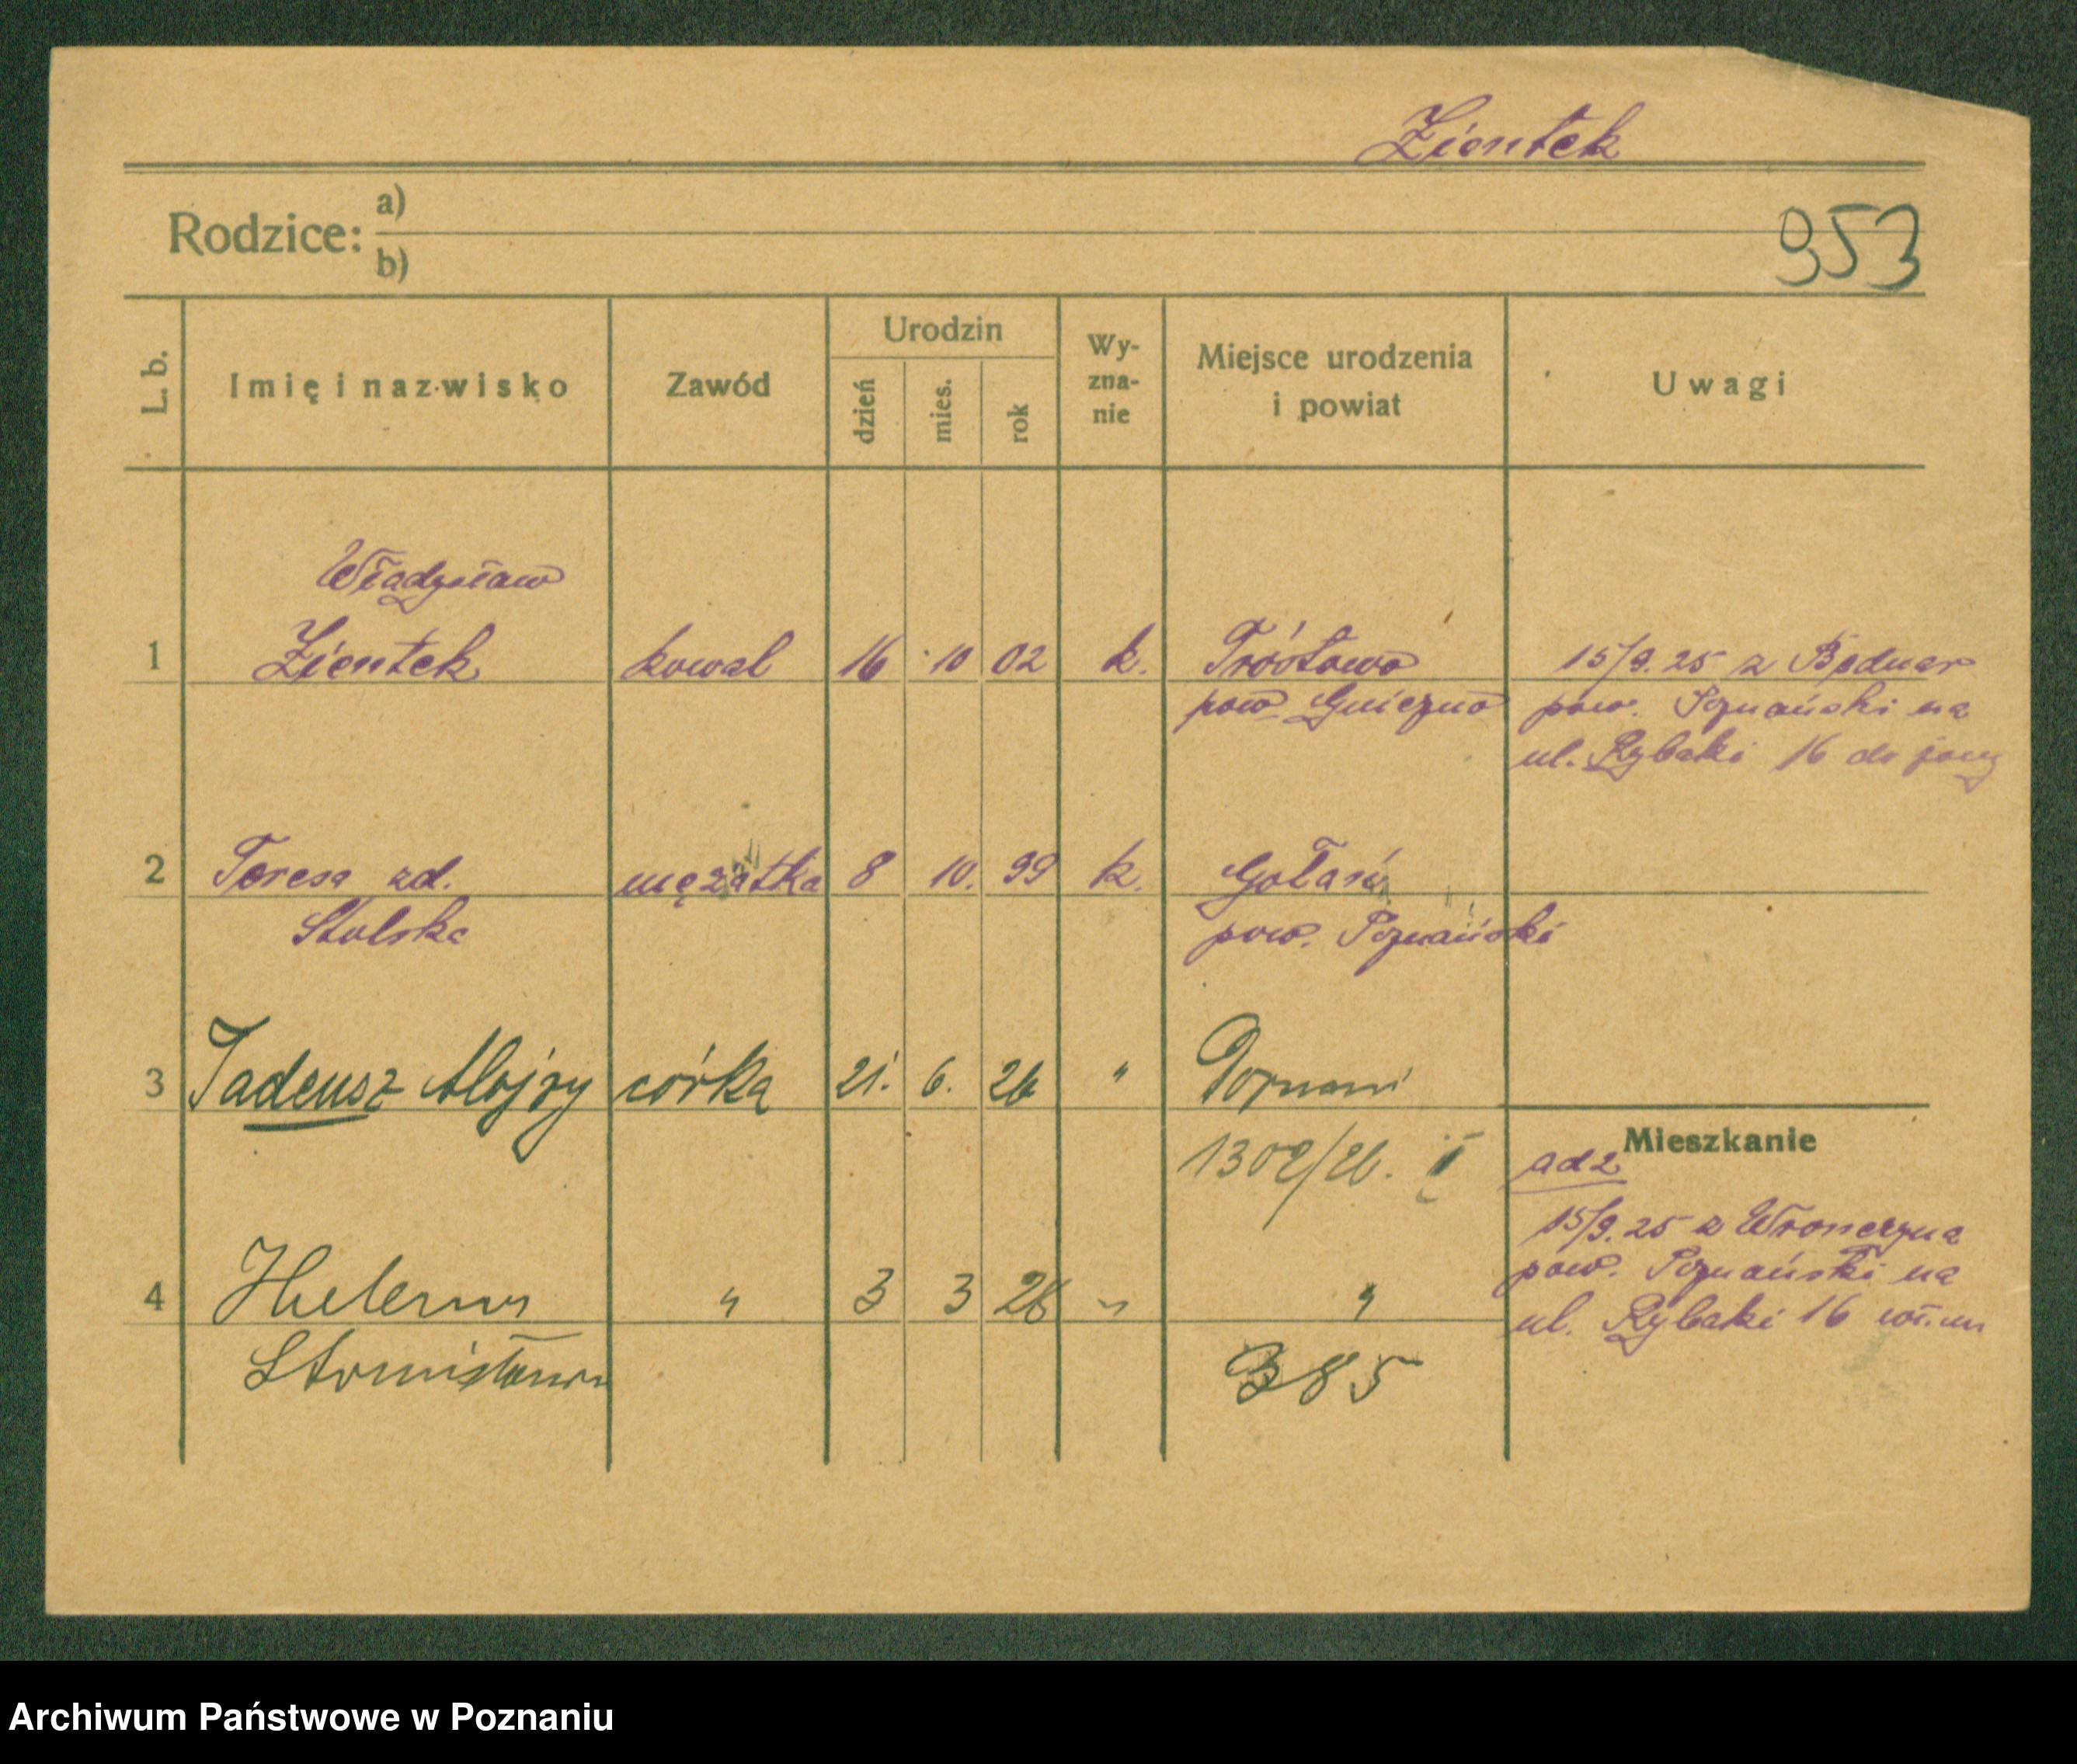 Zientek
Rodzice: a)
b)
953
L. b.
Imię i nazwisko
Zawód
Urodzin
dzień
mies.
rok
Wy-
zna-
nie
Miejsce urodzenia
i powiat
Uwagi
Władysław
1 Zientek kowal 16 10 02 k.
pow. Gniezno
15/9.25 z Bednar
pow. Poznański na
ul. Rybaki 16 do
2 Teresa zd. mężatka 8 10. 99 k.
Stolska
pow. Poznański
3 Tadeusz Alojzy córka 21. 6. 26 " Poznań
1302/26. II
4 Helena " 3 3 28 " "
Stanisława
385
Mieszkanie
ad 2
15/9.25 z Wronczyna
pow. Poznański na
ul. Rybaki 16
Archiwum Państwowe w Poznaniu